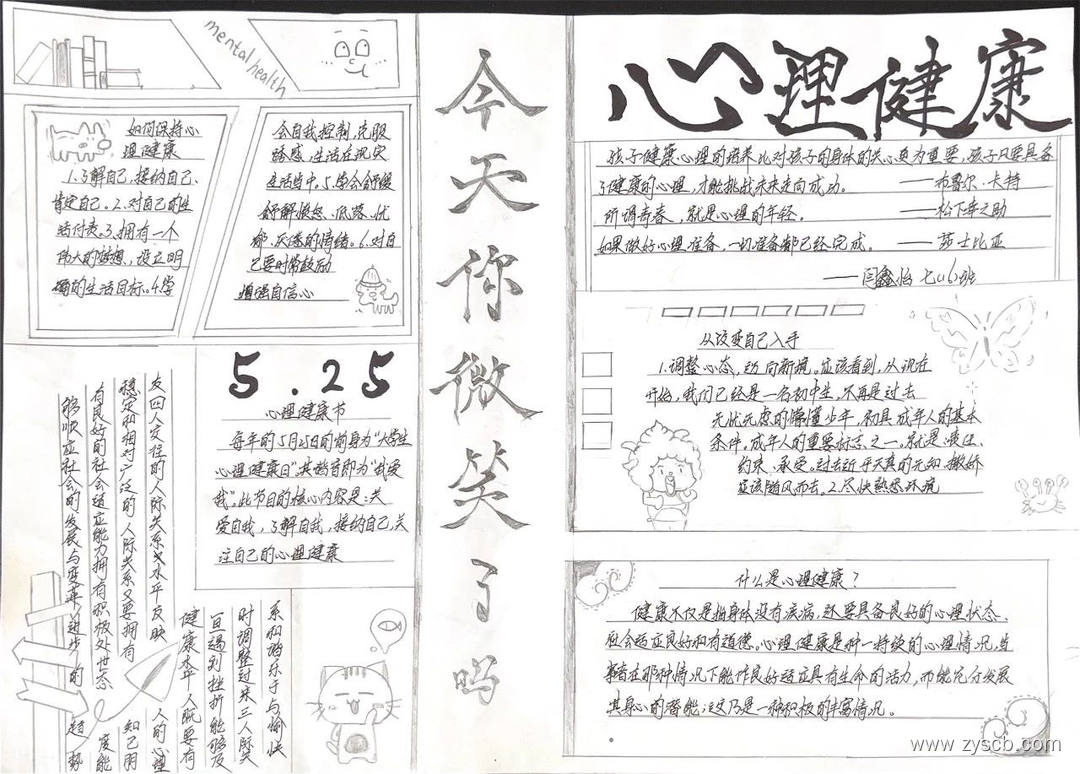 mental health
如何保持心
理健康
1.了解自己、接纳自己、
肯定自己。2.对自己的生
活付责。3.拥有一个
伟大的梦想，设立明
确的生活目标。4.学
会自我控制，克服
诱惑，生活在现实
生活当中。5.学会舒缓
舒解愤怒、低落、忧
郁、厌倦的情绪。6.对自
己要时常鼓励
增强自信心
今天你微笑了吗
心理健康
孩子健康心理的培养比对孩子的身体的关心更为重要，孩子只要具备
了健康的心理，才能挑战未来走向成功。 ——布鲁尔·卡特
所谓青春，就是心理的年轻。 ——松下幸之助
如果做好心理准备，一切准备都已经完成。 ——莎士比亚
——闫鑫怡 七(6)班
从改变自己入手
1.调整心态，迈向新境。应该看到，从现在
开始，我们已经是一名初中生，不再是过去
无忧无虑的懵懂少年，初具成年人的基本
条件，成年人的重要标志之一，就是：责任、
约束、承受。过去近乎天真的无知、撒娇
应该随风而去。2.尽快熟悉环境
什么是心理健康？
健康不仅是指身体没有疾病，还要具备良好的心理状态、
社会适应良好和有道德。心理健康是种一持续的心理情况，当
者在那种情况下能作良好适应具有生命的活力，而能充分发展
其身心的潜能；这乃是一种积极的丰富情况。
5.25
心理健康节
每年的5月25日的前身为“大学生
心理健康日”。其谐音即为“我爱
我”，此节目的核心内容是：关
爱自我，了解自我，接纳自己，关
注自己的心理健康
系和谐乐于与愉快
时调整过来三人际关
百遇到挫折能够及
健康水平人既要有
友四人交往的人际关系关水平反映 人的心理
稳定和相对广泛的人际关系又要拥有 知己朋
有良好的社会适应能力拥有积极处世态 度能
够顺应社会的发展与变革(进步)的 趋势
www.zyscb.com